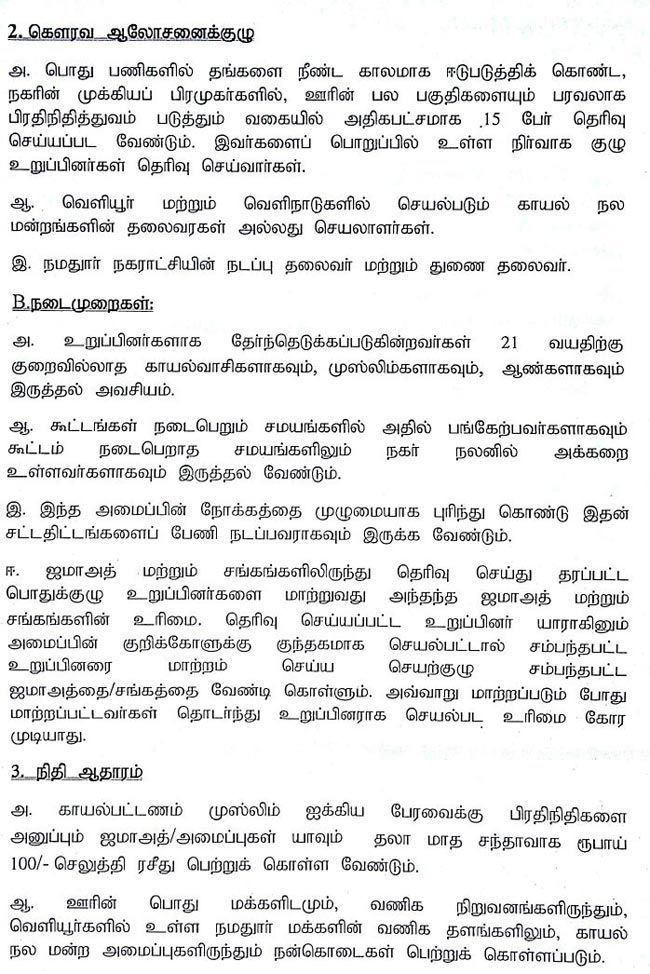 2. கௌரவ ஆலோசனைக்குழு
அ. பொது பணிகளில் தங்களை நீண்ட காலமாக ஈடுபடுத்திக் கொண்ட,
நகரின் முக்கியப் பிரமுகர்களில், ஊரின் பல பகுதிகளையும் பரவலாக
பிரதிநிதித்துவம் படுத்தும் வகையில் அதிகபட்சமாக 15 பேர் தெரிவு
செய்யப்பட வேண்டும். இவர்களைப் பொறுப்பில் உள்ள நிர்வாக குழு
உறுப்பினர்கள் தெரிவு செய்வார்கள்.
ஆ. வெளியூர் மற்றும் வெளிநாடுகளில் செயல்படும் காயல் நல
மன்றங்களின் தலைவரகள் அல்லது செயலாளர்கள்.
இ. நமதுார் நகராட்சியின் நடப்பு தலைவர் மற்றும் துணை தலைவர்.
B.நடைமுறைகள்:
அ. உறுப்பினர்களாக தேர்ந்தெடுக்கப்படுகின்றவர்கள் 21 வயதிற்கு
குறைவில்லாத காயல்வாசிகளாகவும், முஸ்லிம்களாகவும், ஆண்களாகவும்
இருத்தல் அவசியம்.
ஆ. கூட்டங்கள் நடைபெறும் சமயங்களில் அதில் பங்கேற்பவர்களாகவும்
கூட்டம் நடைபெறாத சமயங்களிலும் நகர் நலனில் அக்கறை
உள்ளவர்களாகவும் இருத்தல் வேண்டும்.
இ. இந்த அமைப்பின் நோக்கத்தை முழுமையாக புரிந்து கொண்டு இதன்
சட்டதிட்டங்களைப் பேணி நடப்பவராகவும் இருக்க வேண்டும்.
ஈ. ஜமாஅத் மற்றும் சங்கங்களிலிருந்து தெரிவு செய்து தரப்பட்ட
பொதுக்குழு உறுப்பினர்களை மாற்றுவது அந்தந்த ஜமாஅத் மற்றும்
சங்கங்களின் உரிமை. தெரிவு செய்யப்பட்ட உறுப்பினர் யாராகினும்
அமைப்பின் குறிக்கோளுக்கு குந்தகமாக செயல்பட்டால் சம்பந்தபட்ட
உறுப்பினரை மாற்றம் செய்ய செயற்குழு சம்பந்தபட்ட
ஜமாஅத்தை/சங்கத்தை வேண்டி கொள்ளும். அவ்வாறு மாற்றப்படும் போது
மாற்றப்பட்டவர்கள் தொடர்ந்து உறுப்பினராக செயல்பட உரிமை கோர
முடியாது.
3. நிதி ஆதாரம்
அ. காயல்பட்டணம் முஸ்லிம் ஐக்கிய பேரவைக்கு பிரதிநிதிகளை
அனுப்பும் ஜமாஅத்/அமைப்புகள் யாவும் தலா மாத சந்தாவாக ரூபாய்
100/- செலுத்தி ரசீது பெற்றுக் கொள்ள வேண்டும்.
ஆ. ஊரின் பொது மக்களிடமும், வணிக நிறுவனங்களிருந்தும்,
வெளியூர்களில் உள்ள நமதுார் மக்களின் வணிக தளங்களிலும், காயல்
நல மன்ற அமைப்புகளிருந்தும் நன்கொடைகள் பெற்றுக் கொள்ளப்படும்.